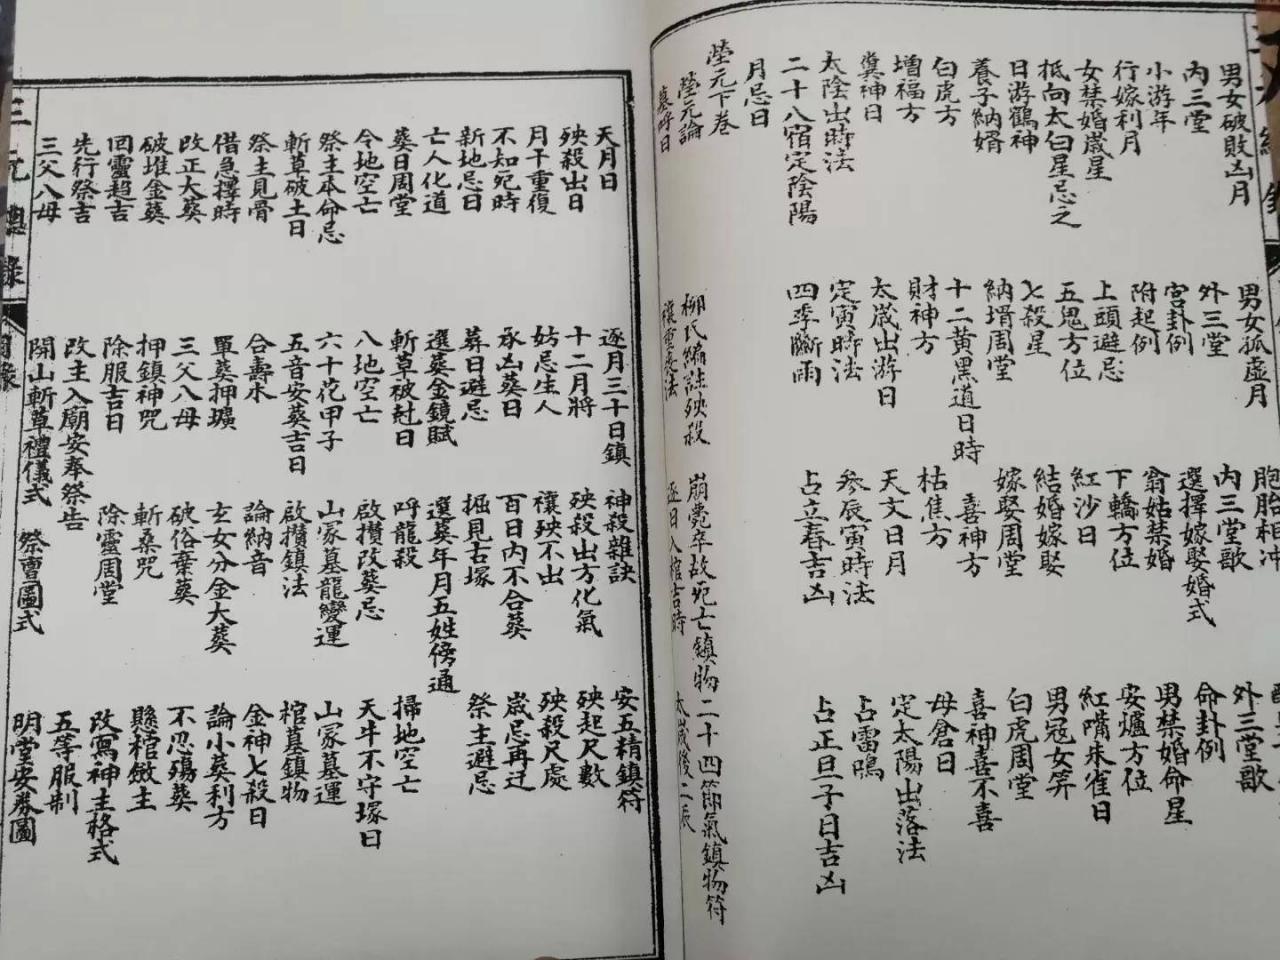 男女破敗凶月 男女孤虛月 胞胎相冲
内三堂 外三堂 内三堂歌 外三堂歌
小游年 宫卦例 選擇嫁娶婚式 命卦例
行嫁利月 附起例 翁姑禁婚 男禁婚命星
女禁婚歲星 上頭避忌 下轎方位 安爐方位
抵向太白星忌之 五鬼方位 紅沙日 紅嘴朱雀日
日游鶴神 七殺星 結婚嫁娶 男冠女笄
養子納婿 納壻周堂 嫁娶周堂 白虎周堂
白虎方 十二黃黑道日時 喜神方 喜神喜不喜
增福方 財神方 枯焦方 母倉日
糞神日 太歲出游日 天文日月 定太陽出落法
太陰出時法 定寅時法 參辰寅時法 占雷鳴
二十八宿定陰陽 四季斷雨 占立春吉凶 占正旦子日吉凶
月忌日
塋元下卷
塋元論 柳氏編註殃殺 崩薨卒故死亡鎮物 二十四節氣鎮物符
墓呼日 禳重喪法 逐日入棺吉時 太歲後二辰
天月日 逐月三十日鎮 神殺雜訣 安五精鎮符
殃殺出日 十二月將 殃殺出方化氣 殃起尺數
月干重復 妨忌生人 禳殃不出 殃殺尺處
不知死時 承凶葬日 百日内不合葬 歲忌再迁
新地忌日 葬日避忌 掘見古塚 祭主避忌
亡人化道 選葬金鏡賦 選葬年月五姓傍通
葬日周堂 斬草破尅日 呼龍殺 掃地空亡
今地空亡 八地空亡 啟攢改葬忌 天牛不守塚日
祭主本命忌 六十花甲子 山冢墓龍變運 山冢墓運
斬草破土日 五音安葬吉日 啟攢鎮法 棺墓鎮物
祭主見骨 合壽木 論納音 金神七殺日
借急擇時 單葬押壙 玄女分金大葬 論小葬利方
改正大葬 三父八母 破俗棄葬 不忍殤葬
破堆金葬 押鎮神咒 斬桑咒 懸棺斂主
回靈超吉 除服吉日 除靈周堂 改寫神主格式
先行祭吉 改主入廟安奉祭告 五等服制
三父八母 開山斬草禮儀式 祭曹圖式 明堂安券圖
三元總錄 目錄